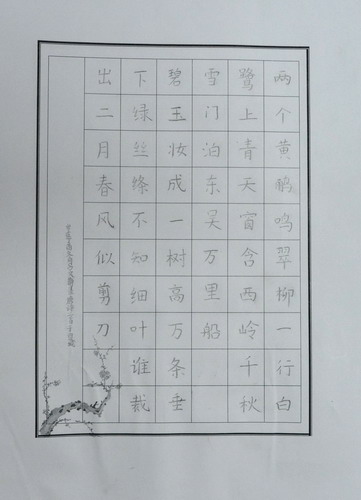 两个黄鹂鸣翠柳一行白
鹭上青天窗含西岭千秋
雪门泊东吴万里船
碧玉妆成一树高万条垂
下绿丝绦不知细叶谁裁
出二月春风似剪刀